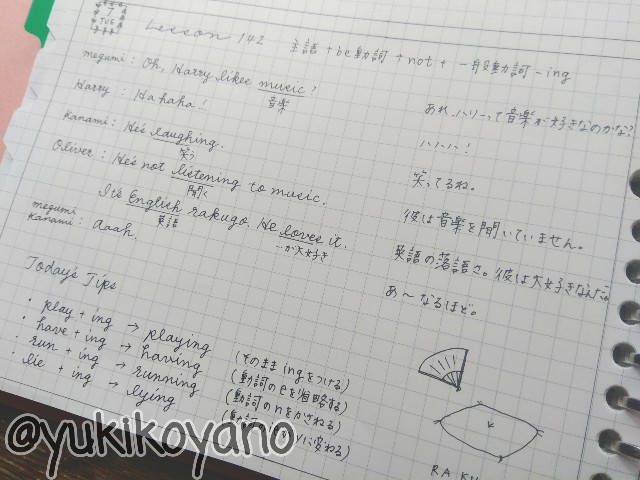 7
TUE
Lesson 142 主語 + be動詞 + not + 一般動詞-ing
megumi : Oh, Harry likes music?
音楽
あれ、ハリーって音楽が大好きなのかな?
Harry : Ha haha!
ハハハ!
Kanami : He's laughing.
笑う
笑ってるね。
Oliver : He's not listening to music.
聞く
彼は音楽を聞いていません。
It's English rakugo. He loves it.
英語
〜が大好き
英語の落語さ。彼は大好きなんだ。
megumi
Kanami : Aaah.
あ〜なるほど。
Today's Tips
・ play + ing → playing (そのまま ing をつける)
・ have + ing → having (動詞の e を省略する)
・ run + ing → running (動詞の n をかさねる)
・ lie + ing → lying yに変わる)
RAKU
@yukikoyano